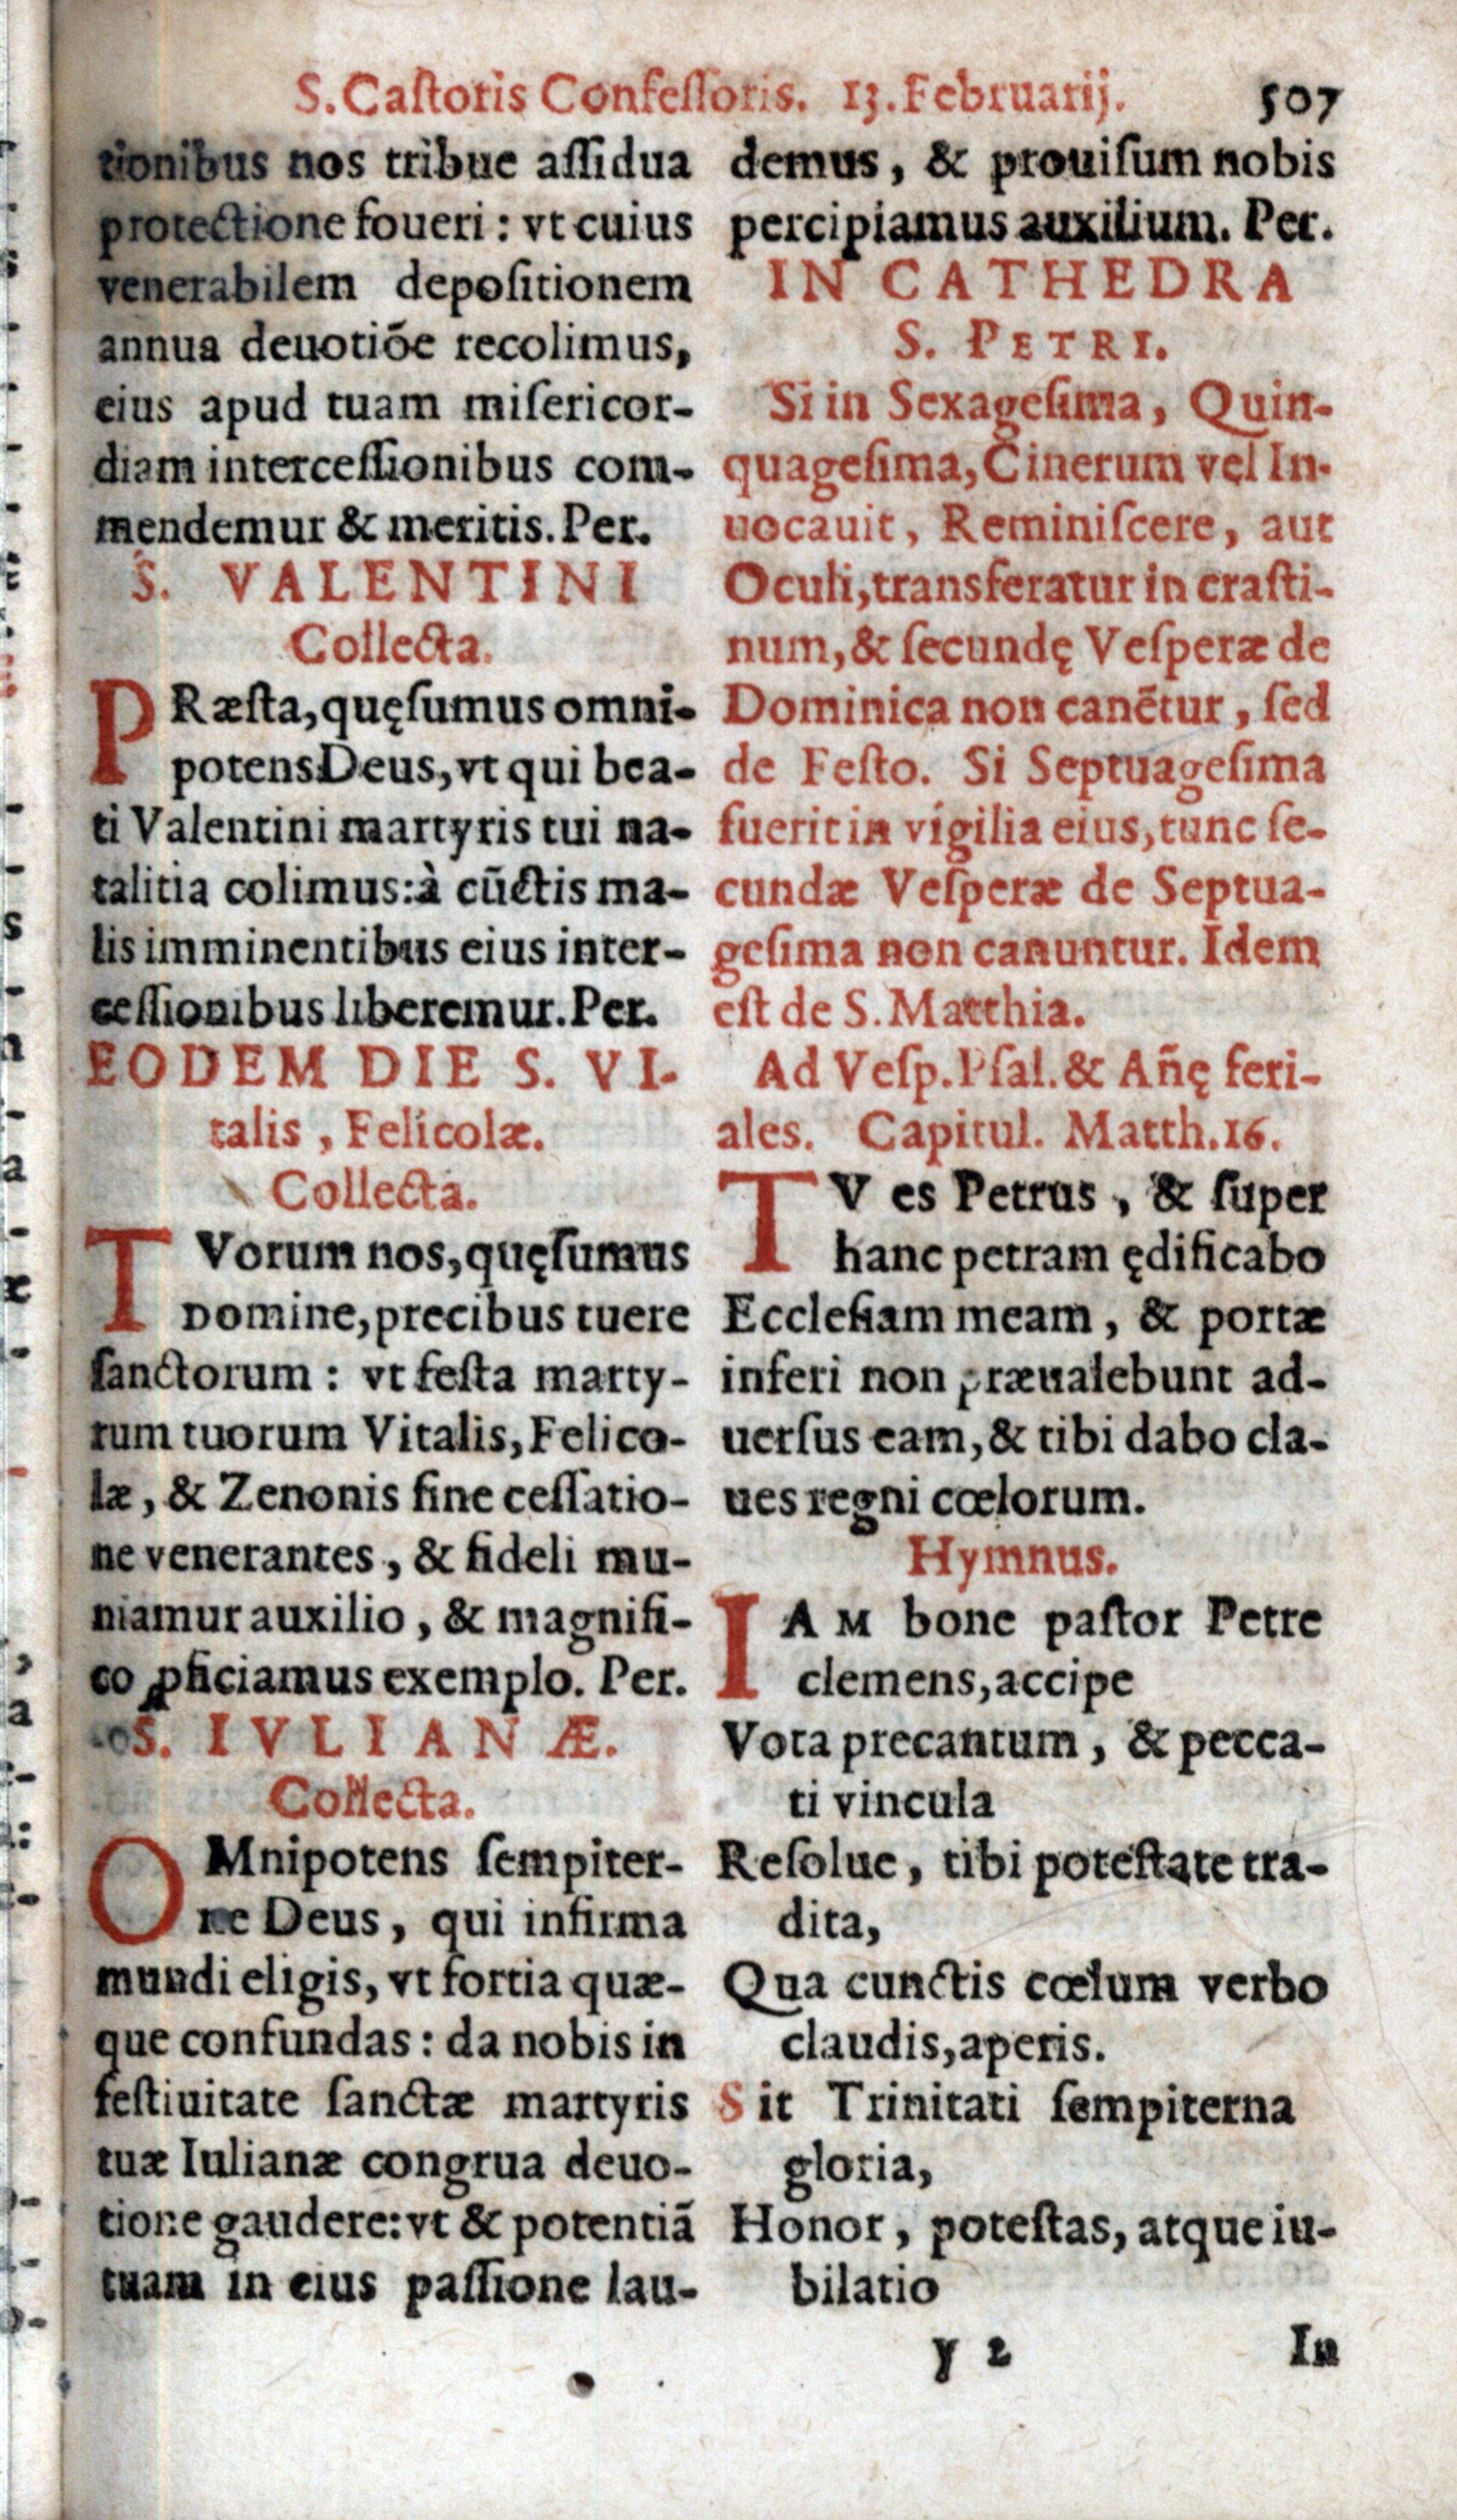 S. Caſtoris Confeſſoris. 13. Februarij. 507
tionibus nos tribue aſſidua
protectione foueri : vt cuius
venerabilem depoſitionem
annua deuotiõe recolimus,
eius apud tuam miſericor-
diam interceſſionibus com-
mendemur & meritis. Per.
S. VALENTINI
Collecta.
PRæſta, quęſumus omni-
potens Deus, vt qui bea-
ti Valentini martyris tui na-
talitia colimus: à cũctis ma-
lis imminentibus eius inter-
ceſſionibus liberemur. Per.
EODEM DIE S. VI-
talis, Felicolæ.
Collecta.
TVorum nos, quęſumus
Domine, precibus tuere
ſanctorum : vt feſta marty-
rum tuorum Vitalis, Felico-
læ, & Zenonis ſine ceſſatio-
ne venerantes, & fideli mu-
niamur auxilio, & magnifi-
co ꝓficiamus exemplo. Per.
S. IVLIANÆ.
Collecta.
OMnipotens ſempiter-
ne Deus, qui infirma
mundi eligis, vt fortia quæ-
que confundas : da nobis in
feſtiuitate ſanctæ martyris
tuæ Iulianæ congrua deuo-
tione gaudere: vt & potentiã
tuam in eius paſſione lau-
demus, & prouiſum nobis
percipiamus auxilium. Per.
IN CATHEDRA
S. PETRI.
Si in Sexageſima, Quin-
quageſima, Cinerum vel In-
uocauit, Reminiſcere, aut
Oculi, transferatur in craſti-
num, & ſecundę Veſperæ de
Dominica non canẽtur, ſed
de Feſto. Si Septuageſima
fuerit in vigilia eius, tunc ſe-
cundæ Veſperæ de Septua-
geſima non canuntur. Idem
eſt de S. Matthia.
Ad Veſp. Pſal. & Añę feri-
ales. Capitul. Matth. 16.
TV es Petrus, & ſuper
hanc petram ędificabo
Eccleſiam meam, & portæ
inferi non præualebunt ad-
uerſus eam, & tibi dabo cla-
ues regni cœlorum.
Hymnus.
IAM bone paſtor Petre
clemens, accipe
Vota precantum, & pecca-
ti vincula
Reſolue, tibi poteſtate tra-
dita,
Qua cunctis cœlum verbo
claudis, aperis.
Sit Trinitati ſempiterna
gloria,
Honor, poteſtas, atque iu-
bilatio
y 2 In